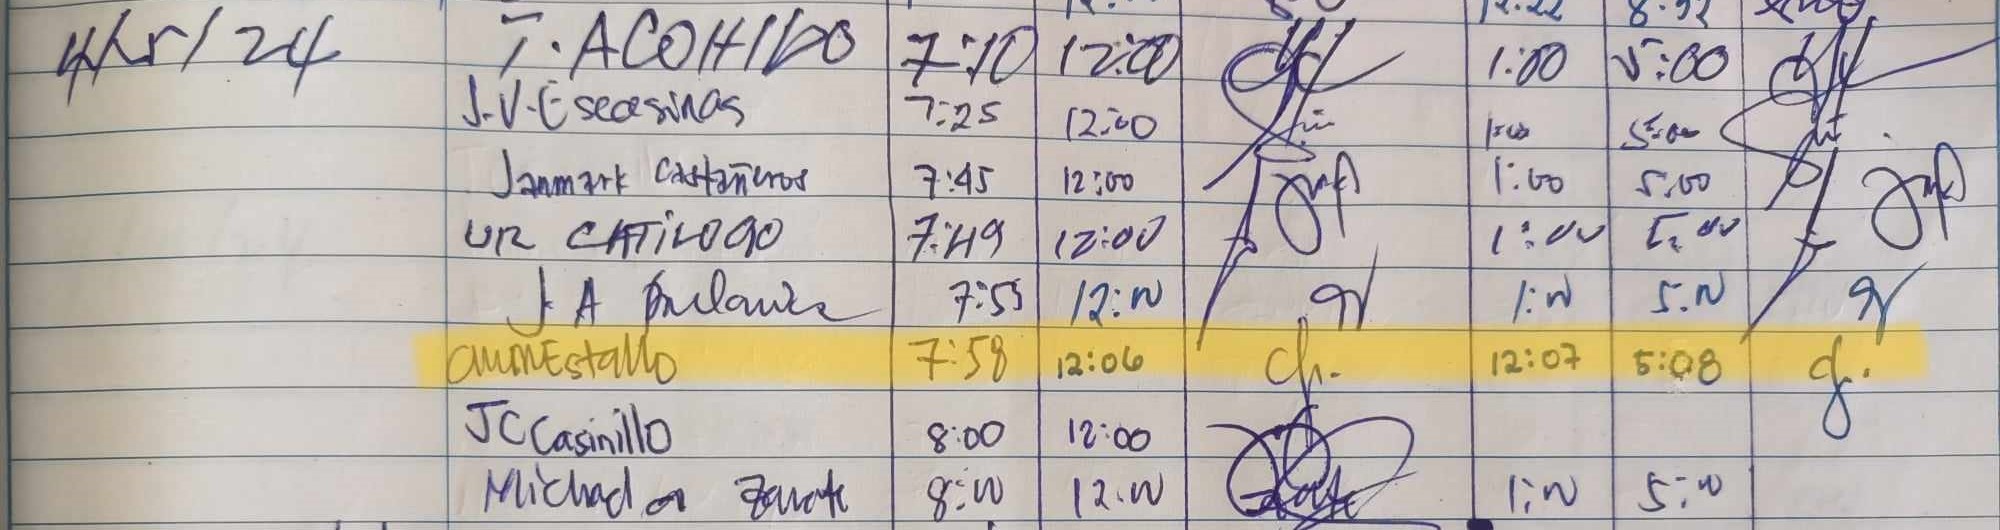 12:22 8:92
4/15/24 T. ACOHIDO 7:10 12:00 1:00 5:00
J.V. Esecasinas 7:25 12:00 1:00 5:00
Janmark Castañeros 7:45 12:00 1:00 5:00
UR CATILOGO 7:49 12:00 1:00 5:00
J A 7:55 12:00 1:00 5:00
Estallo 7:58 12:06 Ch. 12:07 5:08
JC Casinillo 8:00 12:00
Michael a Zarate 8:00 12:00 1:00 5:00